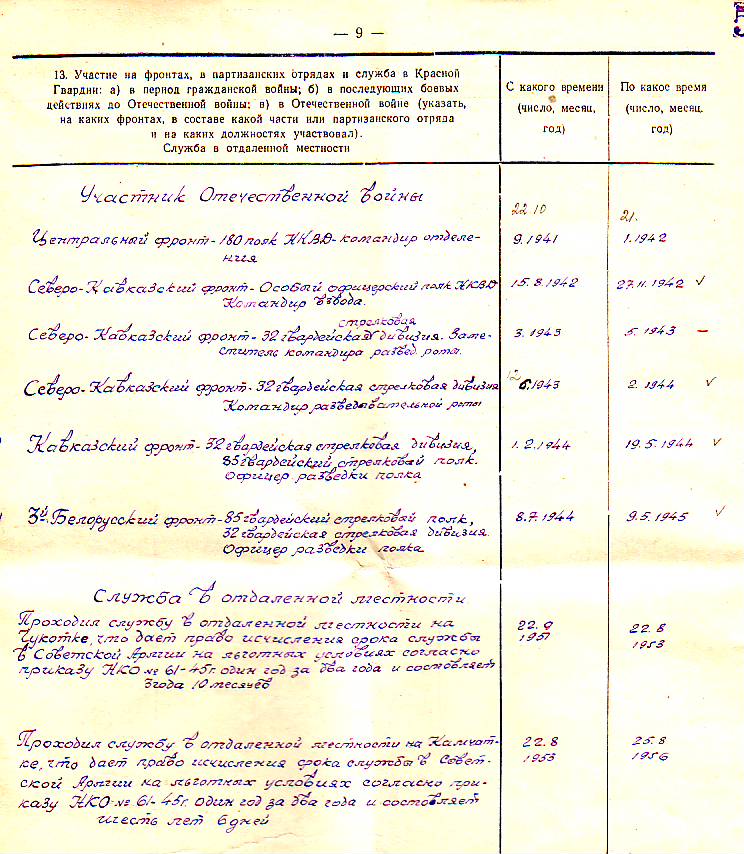 — 9 —
13. Участие на фронтах, в партизанских отрядах и служба в Красной
Гвардии: а) в период гражданской войны; б) в последующих боевых
действиях до Отечественной войны; в) в Отечественной войне (указать,
на каких фронтах, в составе какой части или партизанского отряда
и на каких должностях участвовал).
Служба в отдаленной местности
С какого времени
(число, месяц,
год)
По какое время
(число, месяц,
год)
Участник Отечественной войны
22 10 21.
Центральный фронт - 180 полк НКВД - командир отделе- 9.1941 1.1942
ния
Северо-Кавказский фронт - Особый офицерский полк НКВД 15.8.1942 27.11.1942 ✓
Командир взвода.
стрелковая
Северо-Кавказский фронт - 32 гвардейская дивизия. Заме- 3.1943 5.1943 —
ститель командира развед. роты.
Северо-Кавказский фронт - 32 гвардейская стрелковая дивизия 12 6.1943 2.1944 ✓
Командир разведывательной роты
Кавказский фронт - 32 гвардейская стрелковая дивизия, 1.2.1944 19.5.1944 ✓
85 гвардейский стрелковый полк.
Офицер разведки полка
3й Белорусский фронт - 85 гвардейский стрелковый полк, 8.7.1944 9.5.1945 ✓
32 гвардейская стрелковая дивизия.
Офицер разведки полка.
Служба в отдаленной местности
Проходил службу в отдаленной местности на 22.9 22.8
Чукотке, что дает право исчисления срока службы 1951 1953
в Советской Армии на льготных условиях согласно
приказу НКО № 61-45г. один год за два года и составляет
3 года 10 месяцев
Проходил службу в отдаленной местности на Камчат- 22.8 25.8
ке, что дает право исчисления срока службы в Совет- 1953 1956
ской Армии на льготных условиях согласно при-
казу НКО № 61-45г. один год за два года и составляет
шесть лет 6 дней